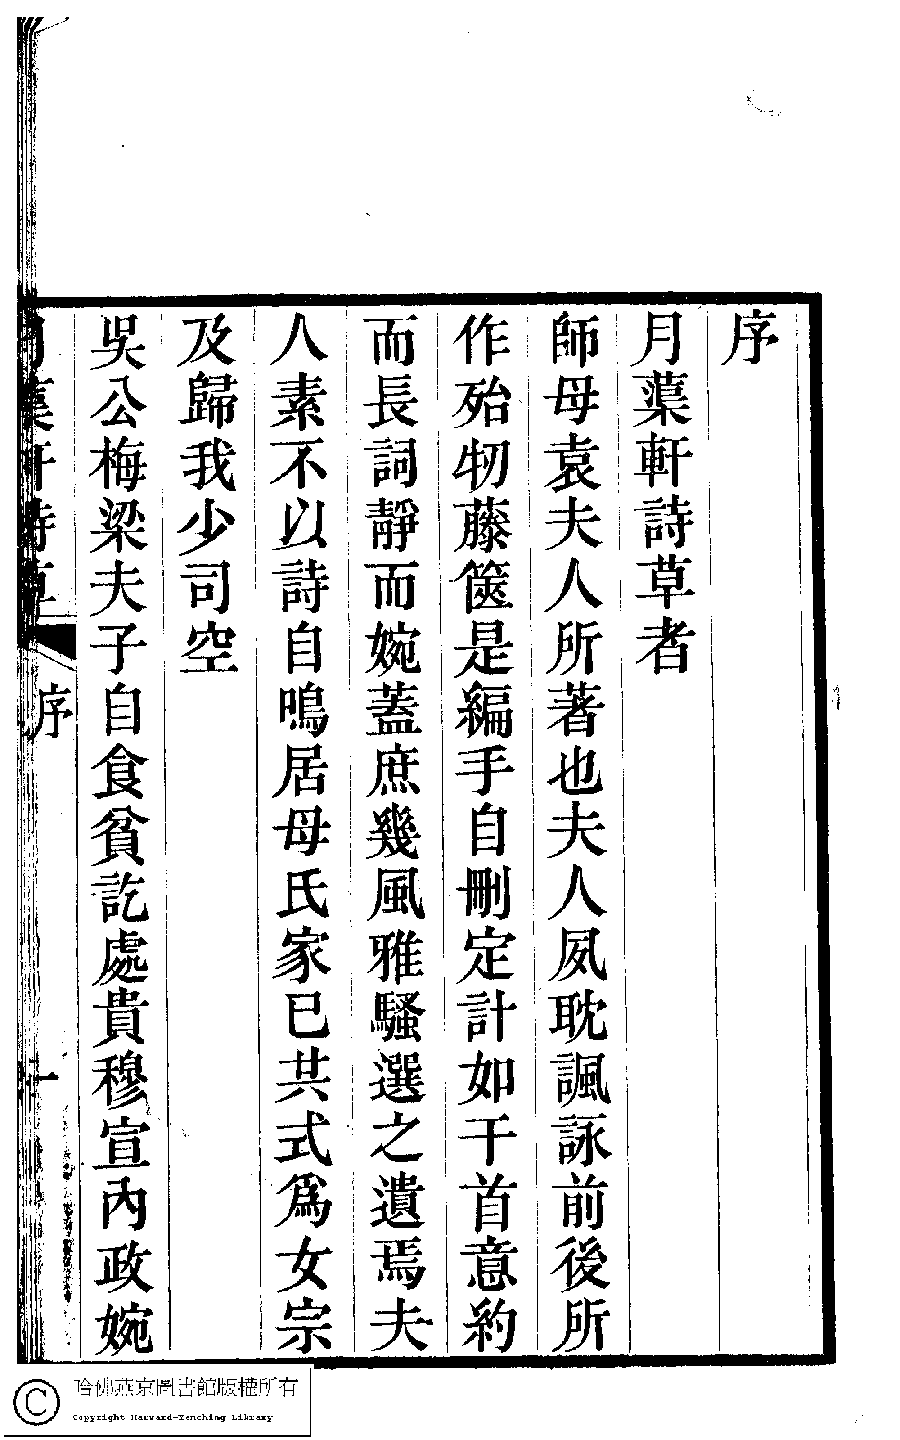 序
月蕖軒詩草者
師母袁夫人所著也夫人夙耽諷詠前後所
作殆牣藤篋是編手自刪定計如干首意約
而長詞靜而婉蓋庶幾風雅騷選之遺焉夫
人素不以詩自鳴居母氏家已共式爲女宗
及歸我少司空
吳公梅梁夫子自食貧訖處貴穆宣內政婉
月蕖軒詩草 序 一
哈佛燕京圖書館版權所有
Copyright Harvard-Yenching Library